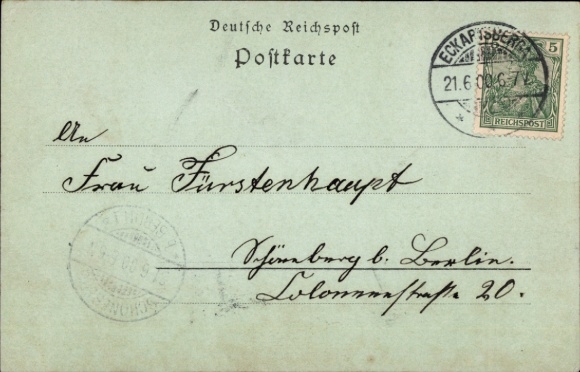 Deutsche Reichspost
Postkarte
ECKARTSBERGA
21.6.00.6-7
5
REICHSPOST
An
Frau Fürstenhaupt
Schöneberg b. Berlin.
Colonnenstraße 20.